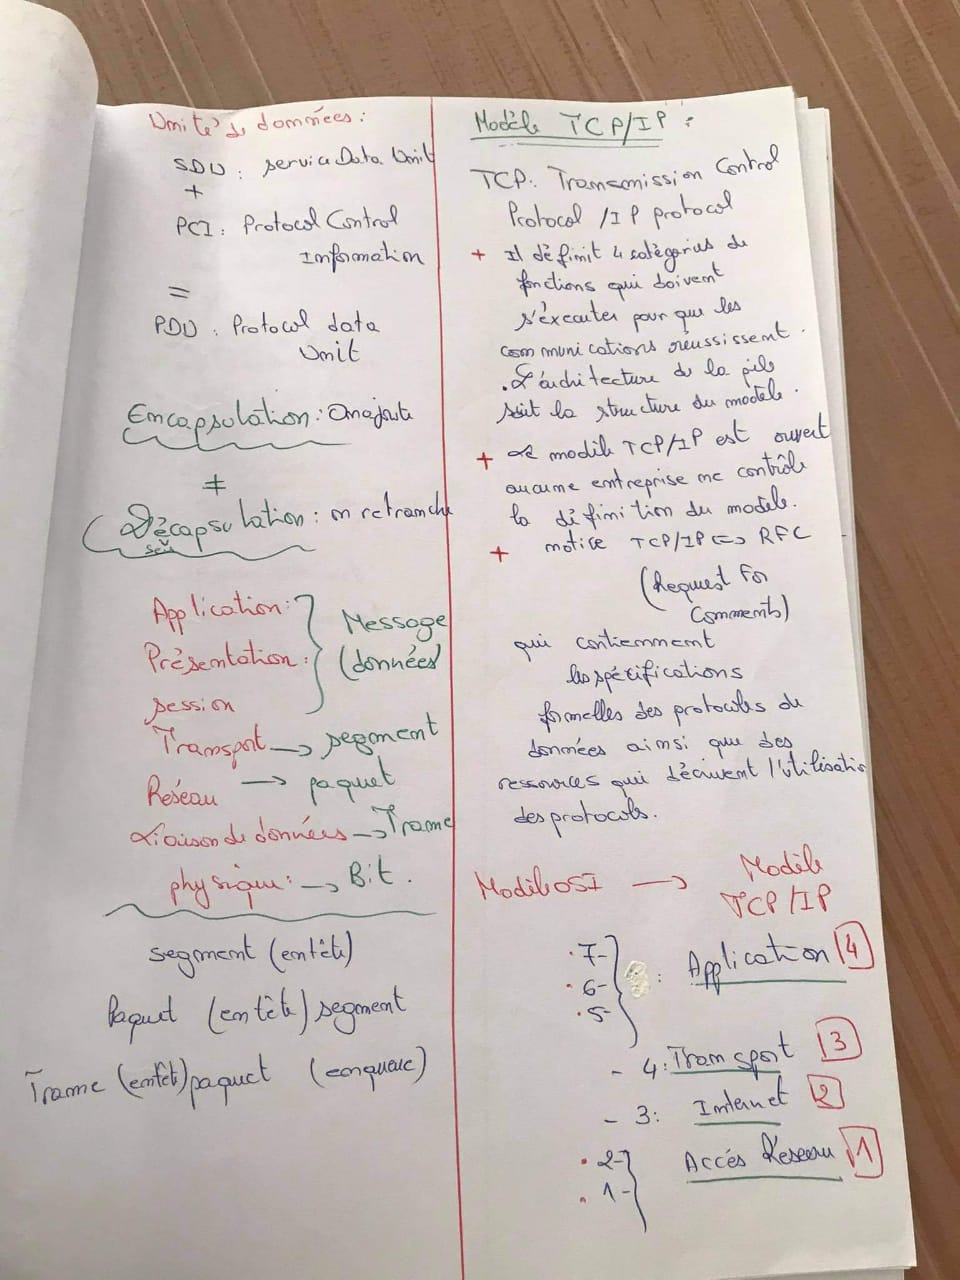 Unité de données :
SDU : service Data Unit
+
PCI : Protocol Control
Information
=
PDU : Protocol data
Unit
Encapsulation : On ajoute
≠
Décapsulation : on retranche
Application :
Présentation :
session
Message
(données)
Transport → segment
Réseau → paquet
Liaison de données → Trame
physique : → Bit.
segment (entête)
Paquet (entête) segment
Trame (entête) paquet (enqueue)
Modèle TCP/IP :
TCP : Transmission Control
Protocol / IP protocol
+ Il définit 4 catégories de
fonctions qui doivent
s'éxecuter pour que les
communications réussissent.
. L'architecture de la pile
suit la structure du modèle.
+ Le modèle TCP/IP est ouvert
aucune entreprise ne contrôle
la définition du modèle.
+ notice TCP/IP <=> RFC
(Request For
Comments)
qui contiennent
les spécifications
formelles des protocoles de
données ainsi que des
ressources qui décrivent l'utilisation
des protocols.
Modèle OSI → Modèle
TCP/IP
. 7-
. 6-
. 5-
: Application 4
- 4 : Transport 3
- 3 : Internet 2
. 2-
. 1-
Accés Réseau 1